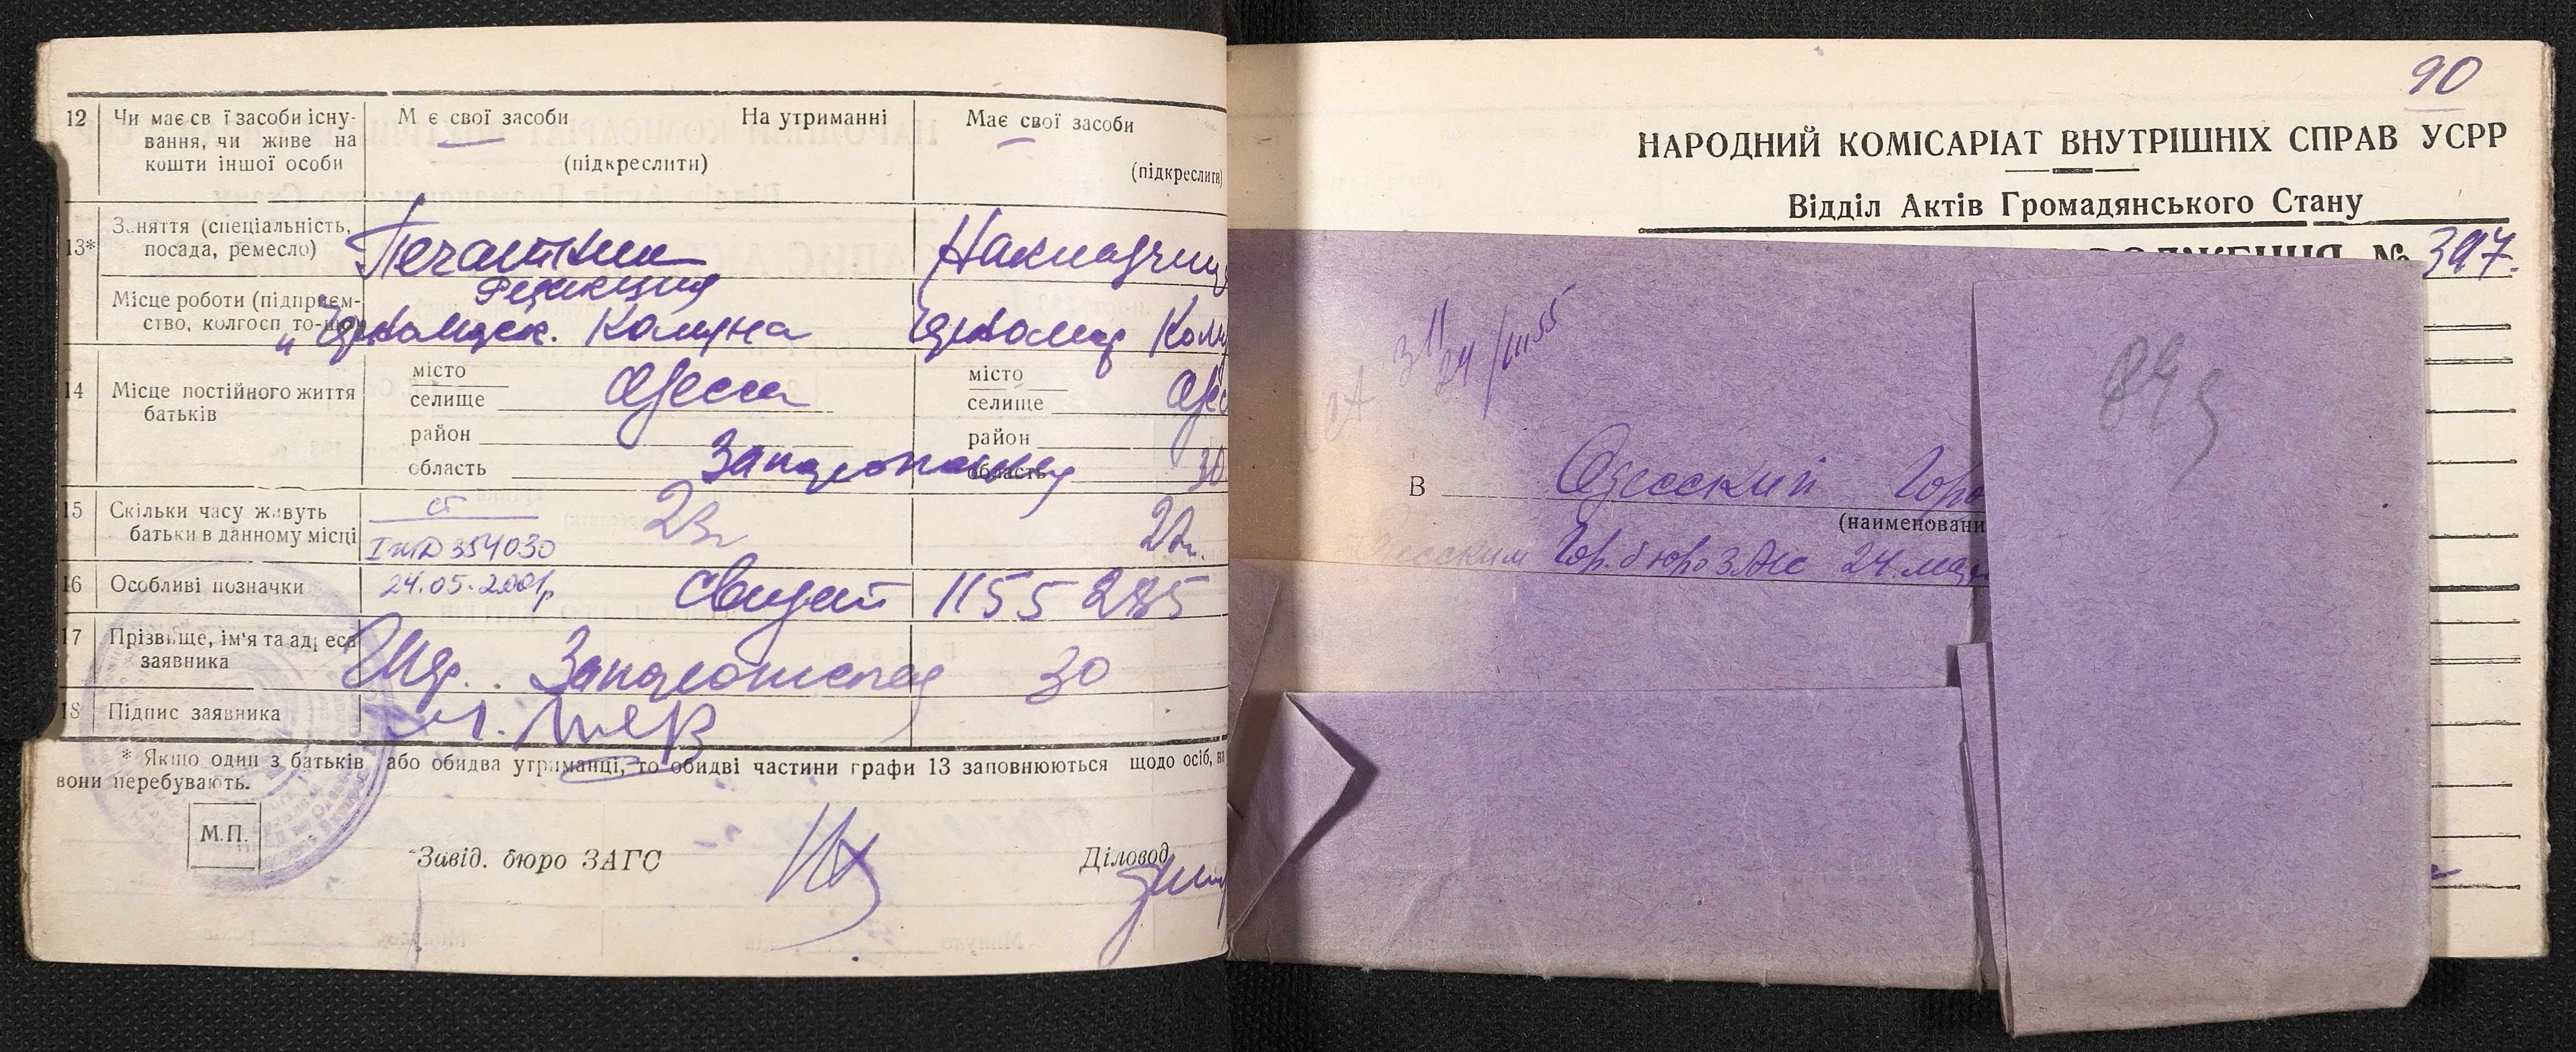 12 Чи має св ї засоби існу- М є свої засоби На утриманні Має свої засоби
вання, чи живе на
кошти іншої особи (підкреслити) (підкреслити)
13* Заняття (спеціальність,
посада, ремесло) Печатник
Редакция
Місце роботи (підприєм-
ство, колгосп то-що) "Чорноморск. Комуна Чорномор Кому
14 Місце постійного життя
батьків
місто місто
селище Одесса селище Одес
район район
область область
15 Скільки часу живуть
батьки в данному місці 23г 22г.
І-ЖД 354030
16 Особливі позначки 24.05.2001р
1155285
17 Прізвище, ім'я та адреса
заявника 30
18 Підпис заявника
* Якщо один з батьків або обидва утриманці, то обидві частини графи 13 заповнюються щодо осіб, на
вони перебувають.
М.П.
Завід. бюро ЗАГС Діловод
90
НАРОДНИЙ КОМІСАРІАТ ВНУТРІШНІХ СПРАВ УСРР
Відділ Актів Громадянського Стану
№ 397.
24/III 55
В Одесский Горо
(наименовани
Гор. бюро ЗАГС 24. мар